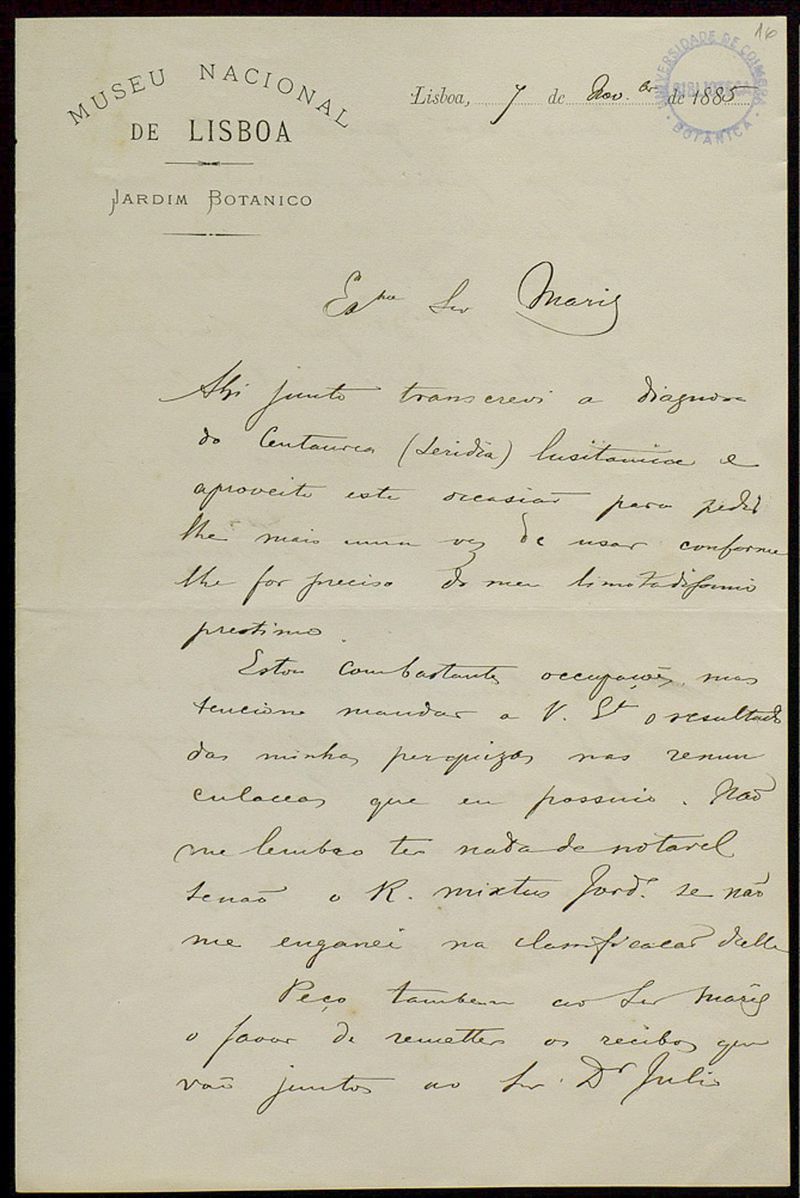 16
MUSEU NACIONAL
DE LISBOA
JARDIM BOTANICO
Lisboa, 7 de Nov.br de 1885
UNIVERSIDADE DE COIMBRA
BIBLIOTECA
BOTÂNICA
Exmo Snr Mariz
Ahi junto transcrevi a diagnose
da Centaurea (Seridia) lusitanica e
aproveito esta occasião para pedir
lhe mais uma vez de usar conforme
lhe for preciso do meu limitadissimo
prestimo.
Estou com bastantes occupações, mas
tenciono mandar a V. Sª o resultado
das minhas perquizas nas renun
culaceas que eu possuio. Não
me lembro ter nada de notavel
senão o R. mixtus Jord. se não
me enganei na classificacão delle
Peço tambem ao Snr Mariz
o favor de remetter os recibos que
vão juntos ao Snr. Dr Julio